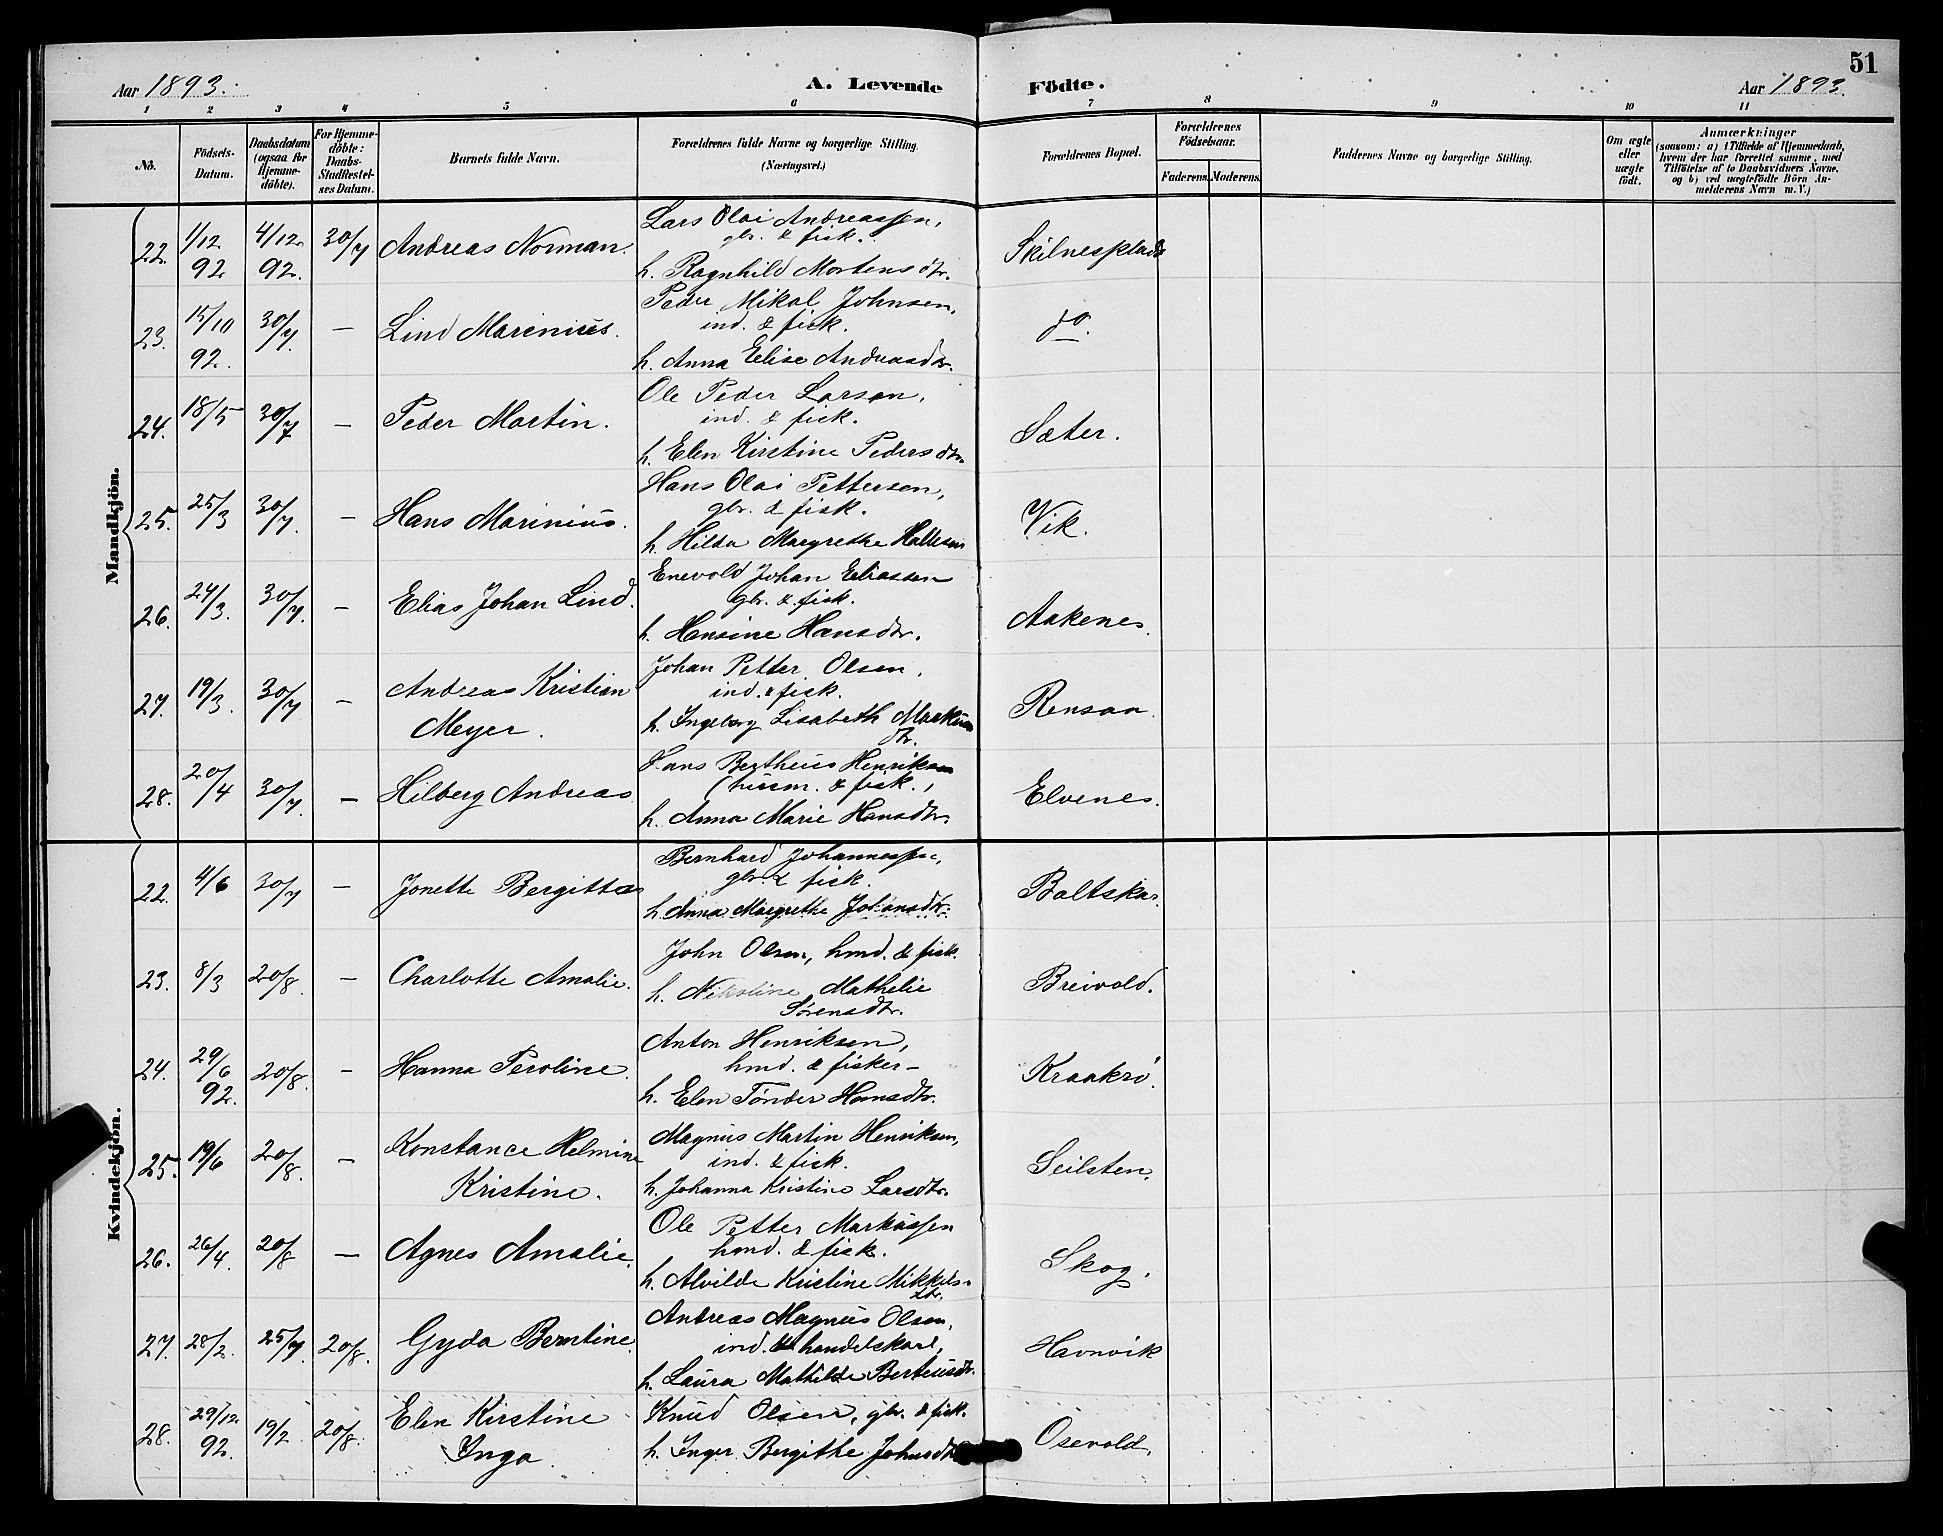 51
Aar 1893. A. Levende Födte. Aar 1893.
1 2 3 4 5 6 7 8 9 10 11
No. Födsels-Datum. Daabsdatum (ogsaa for Hjemme-döbte). For Hjemme-döbte: Daabs-Stadfæstel-ses Datum. Barnets fulde Navn. Forældrenes fulde Navne og borgerlige Stilling. (Næringsvei.) Forældrenes Bopæl. Forældrenes Födselsaar. Faderens. Moderens. Faddernes Navne og borgerlige Stilling. Om ægte eller uægte födt. Anmærkninger (saasom: a) i Tilfælde af Hjemmedaab, hvem der har forrettet samme, med Tilföielse af to Daabsvidners Navne, og b) ved uægtefödte Börn An-melderens Navn m. V.)
Mandkjön.
Lars Olai Andreassen,
22. 1/12 92 4/12 92. 30/7 Andreas Norman. gbr. & fisk. Skilnesplads
h. Ragnhild Mortensdtr.
Peder Mikal Johnsen,
23. 15/10 92. 30/7. — Lind Marinius. ind. & fisk. do.
h. Anna Elise Andreasdtr.
Ole Peder Larsen,
24. 18/5 30/7 — Peder Martin. ind. & fisk. Sæter.
h. Elen Kirstine Pedersdtr.
Hans Olai Pettersen,
25. 25/3 30/7. — Hans Marinius. gbr. & fisk. Vik.
h. Hilda Margrethe
Enevold Johan Eliassen
26. 24/3. 30/7. — Elias Johan Lind. gbr. & fisk. Aakenes.
h. Hansine Hansdtr.
Johan Petter Olsen,
27. 19/3. 30/7 — Andreas Kristian ind. & fisk. Rensaa
Meyer. h. Ingeborg Lisabeth Markus
dtr.
Hans Bertheus Henriksen
28. 20/4 30/7. — Hilberg Andreas (husm. & fisk., Elvenes.
h. Anna Marie Hansdtr.
Kvindekjön.
Bernhard Johannessen,
22. 4/6 30/7 — Jonette Bergitta gbr. & fisk. Baltskar.
h. Anna Margrethe Johansdtr.
John Olsen, hmd. & fisk.
23. 8/3 20/8. — Charlotte Amalie. h. Nikoline Mathelie Breivold.
Sørensdtr.
Anton Henriksen,
24. 29/6 92. 20/8. — Hanna Peroline. hmd. & fisker — Kraakrö.
h. Elen Tønder Hansdtr.
Magnus Martin Henriksen,
25. 19/6 20/8. — Konstance Helmine ind. & fisk. Seilsten.
Kristine. h. Johanna Kristine Larsdtr.
Ole Petter Markussen
26. 26/4. 20/8 — Agnes Amalie. hmd. & fisk. Skog.
h. Alvilde Kristine Mikkels-
dtr.
Andreas Magnus Olsen,
27. 28/2. 25/7. 20/8. Gyda Berntine. ind. & handelskarl, Havnvik
h. Laura Mathilde Berteusdtr.
28. 29/12 92. 19/2. 20/8. Elen Kirstine Knud Olsen, gbr. & fisk. Osevold.
Inga. h. Inger Bergithe Johnsdtr.